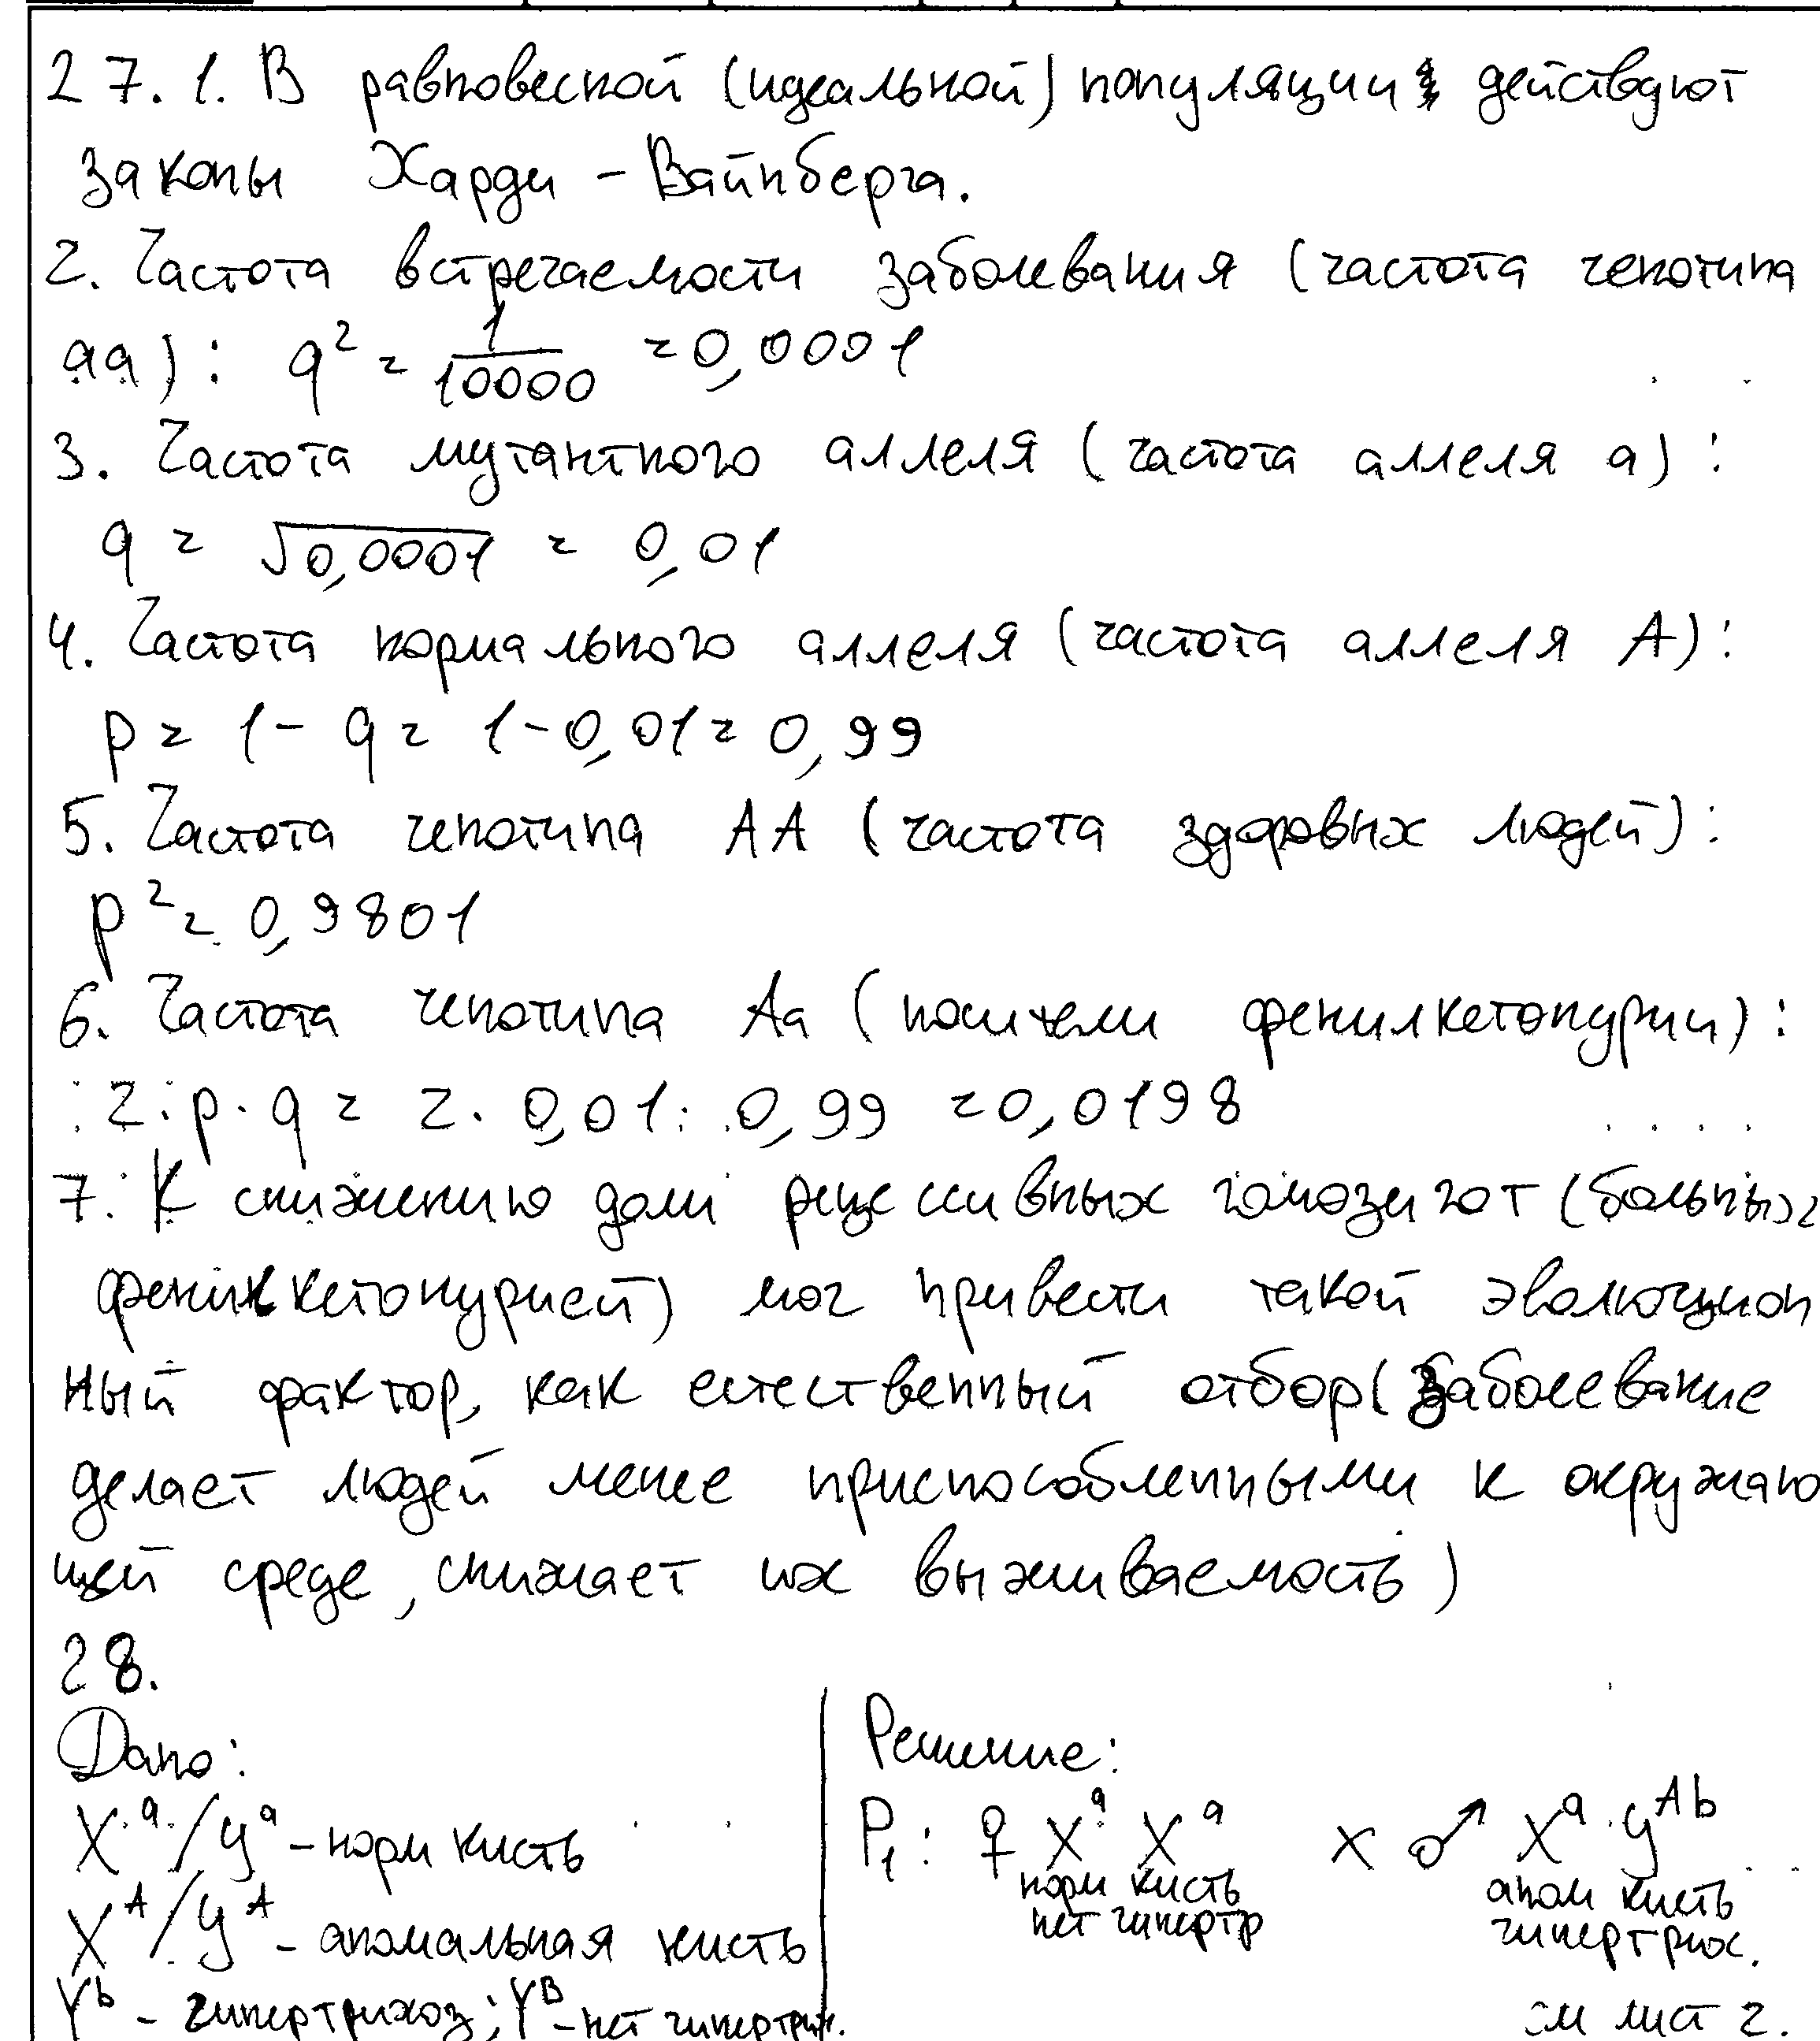 27.1. В равновесной (идеальной) популяции действуют
законы Харди - Вайнберга.
2. Частота встречаемости заболевания (частота генотипа
aa): q² = 1/10000 = 0,0001
3. Частота мутантного аллеля (частота аллеля a):
q = √0,0001 = 0,01
4. Частота нормального аллеля (частота аллеля A):
p = 1 - q = 1 - 0,01 = 0,99
5. Частота генотипа AA (частота здоровых людей):
p² = 0,9801
6. Частота генотипа Aa (носители фенилкетонурии):
2·p·q = 2·0,01·0,99 = 0,0198
7. К снижению доли рецессивных гомозигот (больных
фенилкетонурией) мог привести такой эволюцион
ный фактор, как естественный отбор (заболевание
делает людей менее приспособленными к окружаю
щей среде, снижает их выживаемость)
28.
Дано:
Xᵃ/Yᵃ - норм кисть
Xᴬ/Yᴬ - аномальная кисть
Yᵇ - гипертрихоз; Yᴮ - нет гипертрих.
Решение:
P₁: ♀ Xᵃ Xᵃ x ♂ Xᵃ Yᴬᵇ
норм кисть аном кисть
нет гипертр гипертрих.
см лист 2.